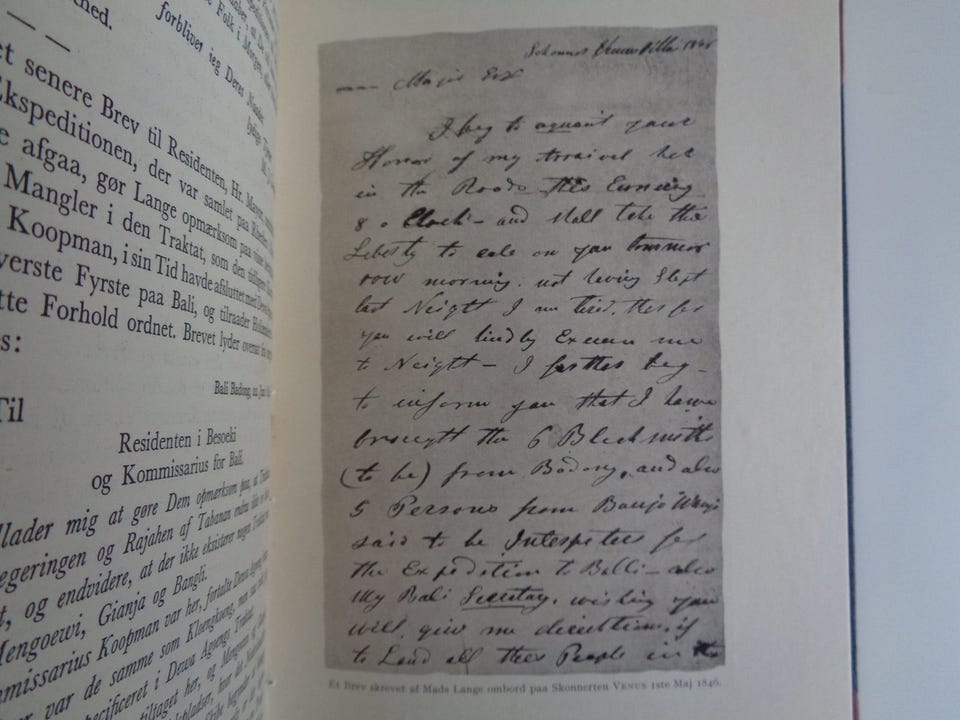 thed.
forbliver jeg Deres
et senere Brev til Residenten, Hr. Mayor,
Ekspeditionen, der var samlet paa
e afgaa, gør Lange opmærksom paa
Mangler i den Traktat, som den
Koopman, i sin Tid havde afsluttet med
verste Fyrste paa Bali, og tilraader
tte Forhold ordnet. Brevet lyder oversat
s:
Bali Badong,
Til
Residenten i Besoeki
og Kommissarius for Bali.
llader mig at gøre Dem opmærksom paa, at
egeringen og Rajahen af Tabanan endnu ikke er
t, og endvidere, at der ikke eksisterer nogen
Mengoewi, Gianja og Bangli.
mmissarius Koopman var her, fortalte Dewa
er var de samme som Kloengkoeng, men
specificeret i Dewa Agoengs
tiltaget her, og Mengoewi og
Schonner Venus 1846
Major Esq
I beg to aquaint your
Honnor of my arraivel her
in the Roads this Evening
8 o Clock – and shall take the
Leberty to cale on you tommor
row morning. not having Slept
last Neight I am tired. this for
you will kindly Excuse me
to Neight – I farther beg
to inform you that I have
brought the 6 Blacksmiths
(to be) from Badong, and also
5 Persons from Banjo Wangi
said to be Interpeters for
the Expedition to Balli – also
My Bali Secretary. wishing you
will give me directions, if
to Land all thes People in the
Et Brev skrevet af Mads Lange ombord paa Skonnerten Venus 1ste Maj 1846.